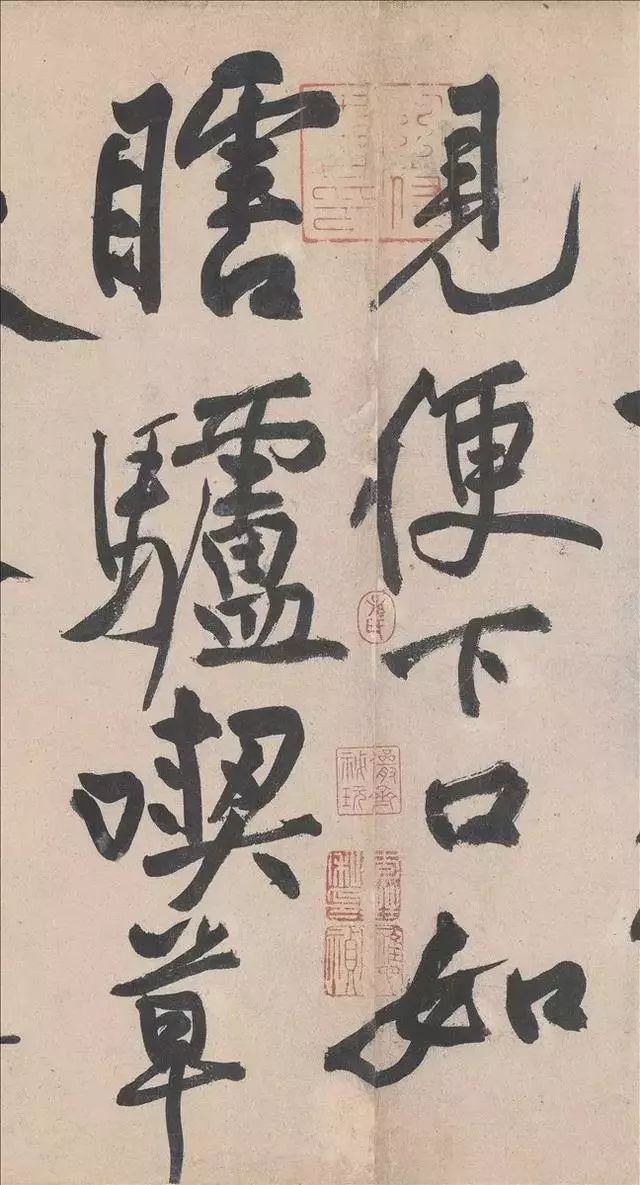 見便下口如
瞎驢喫草